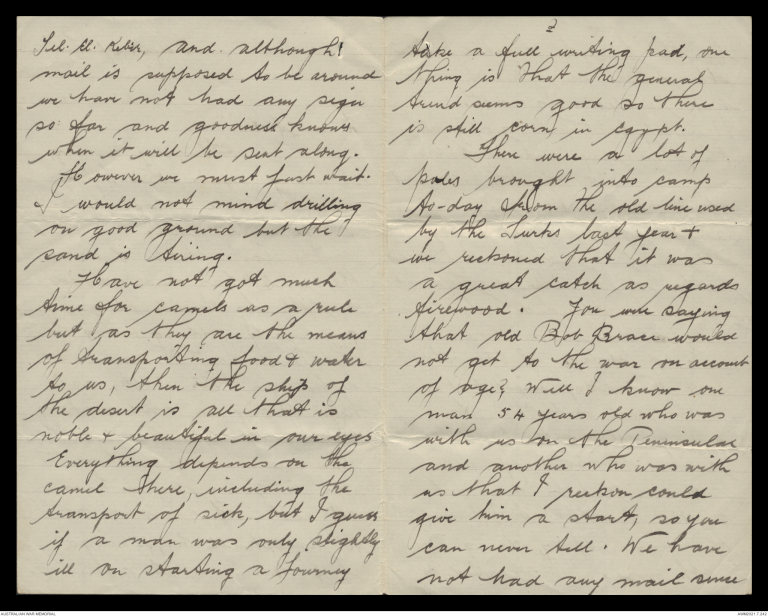 Tel. El. Kebir, and although!
mail is supposed to be around
we have not had any sign
so far and goodness knows
when it will be sent along.
However we must just wait.
I would not mind drilling
on good ground but the
sand is tiring.
Have not got much
time for camels as a rule
but as they are the means
of transporting food & water
to us, then the ships of
the desert is all that is
noble & beautiful in our eyes
Everything depends on the
camel there, including the
transport of sick, but I guess
if a man was only slightly
ill on starting a journey
2
take a full writing pad, one
thing is that the general
trend seems good so there
is still corn in Egypt.
There were a lot of
poles brought into camp
to-day from the old line used
by the Turks last year &
we reckoned that it was
a great catch as regards
firewood. You were saying
that old Bob Brace would
not get to the war on account
of age? Well I know one
man 54 years old who was
with us on the Peninsular
and another who was with
us that I reckon could
give him a start, so you
can never tell. We have
not had any mail since
AUSTRALIAN WAR MEMORIAL